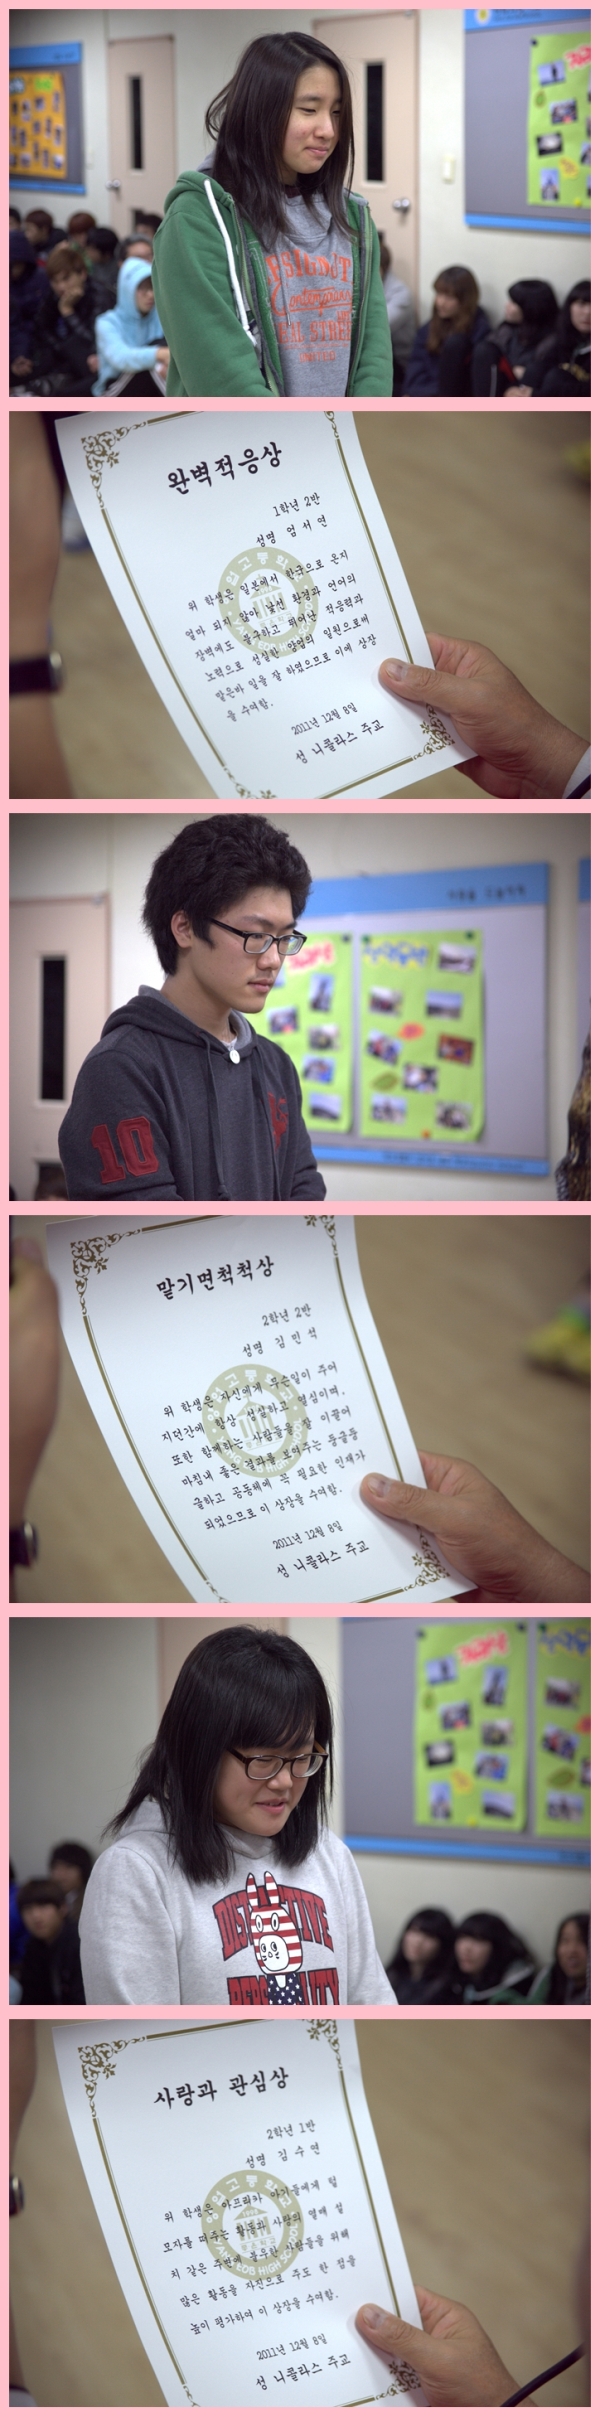 완벽적응상
1학년 2반
성명 엄서연
위 학생은 일본에서 한국으로 온지
얼마 되지 않아 낯선 환경과 언어의
장벽에도 불구하고 뛰어난 적응력과
노력으로 성실한 양업의 일원으로써
맡은바 일을 잘 하였으므로 이에 상장
을 수여함.
2011년 12월 8일
성 니콜라스 주교
10
맡기면척척상
2학년 2반
성명 김민석
위 학생은 자신에게 무슨일이 주어
지던간에 항상 성실하고 열심이며,
또한 함께하는 사람들을 잘 이끌어
마침내 좋은 결과를 보여주는 둥글둥
글하고 공동체에 꼭 필요한 인재가
되었으므로 이 상장을 수여함.
2011년 12월 8일
성 니콜라스 주교
사랑과 관심상
2학년 1반
성명 김수연
양업고등학교
YANG EOB HIGH SCHOOL
위 학생은 아프리카 아기들에게 털
모자를 떠주는 활동과 사랑의 열매 설
치 같은 주변에 불우한 사람들을 위해
많은 활동을 자진으로 주도 한 점을
높이 평가하여 이 상장을 수여함.
2011년 12월 8일
성 니콜라스 주교